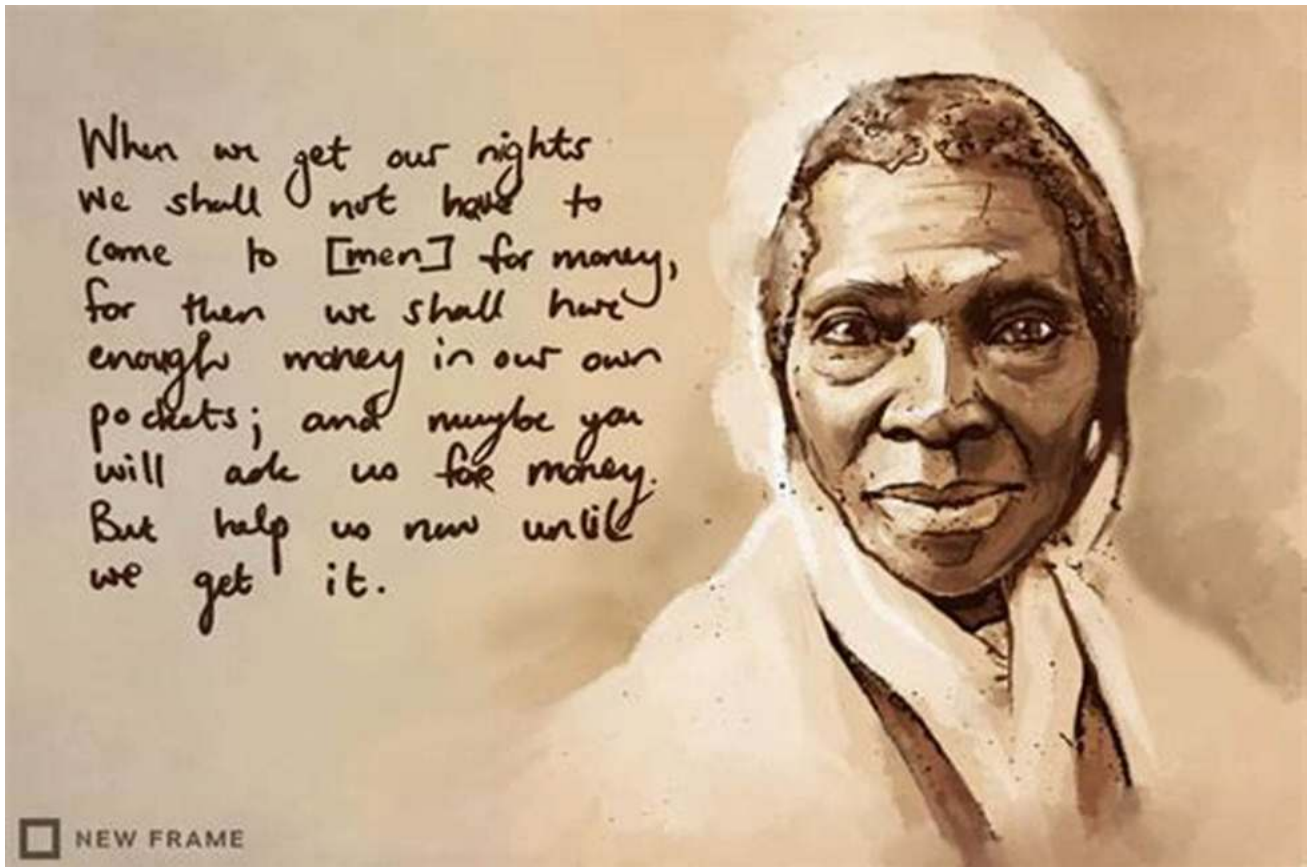 When we get our rights
we shall not have to
come to [men] for money,
for then we shall have
enough money in our own
pockets; and maybe you
will ask us for money.
But help us now until
we get it.
NEW FRAME